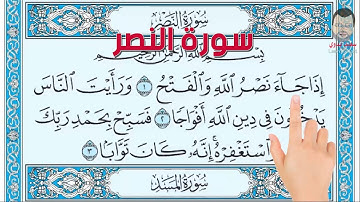 سُورَةُ النَّصْرِ
سورة النصر
بِسْمِ اللَّهِ الرَّحْمَٰنِ الرَّحِيمِ
إِذَا جَاءَ نَصْرُ اللَّهِ وَالْفَتْحُ ١ وَرَأَيْتَ النَّاسَ
يَدْخُلُونَ فِي دِينِ اللَّهِ أَفْوَاجًا ٢ فَسَبِّحْ بِحَمْدِ رَبِّكَ
وَاسْتَغْفِرْهُ إِنَّهُ كَانَ تَوَّابًا ٣
سُورَةُ المَسَدِ